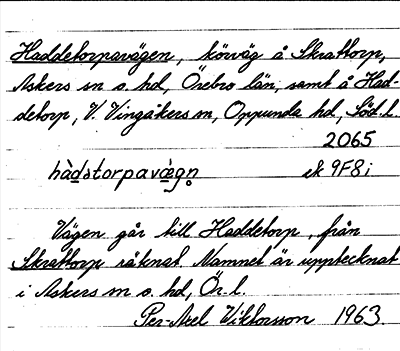 Haddetorpavägen, körväg å Skrattorp,
Askers sn o. hd, Örebro län, samt å Had-
detorp, V. Vingåkers sn, Oppunda hd, Söd. l.
2065
hàdstorpavæ̀gn̥ ek 9F8i
Vägen går till Haddetorp, från
Skrattorp räknat. Namnet är upptecknat
i Askers sn o. hd, Ör. l.
Per-Axel Viktorsson 1963.